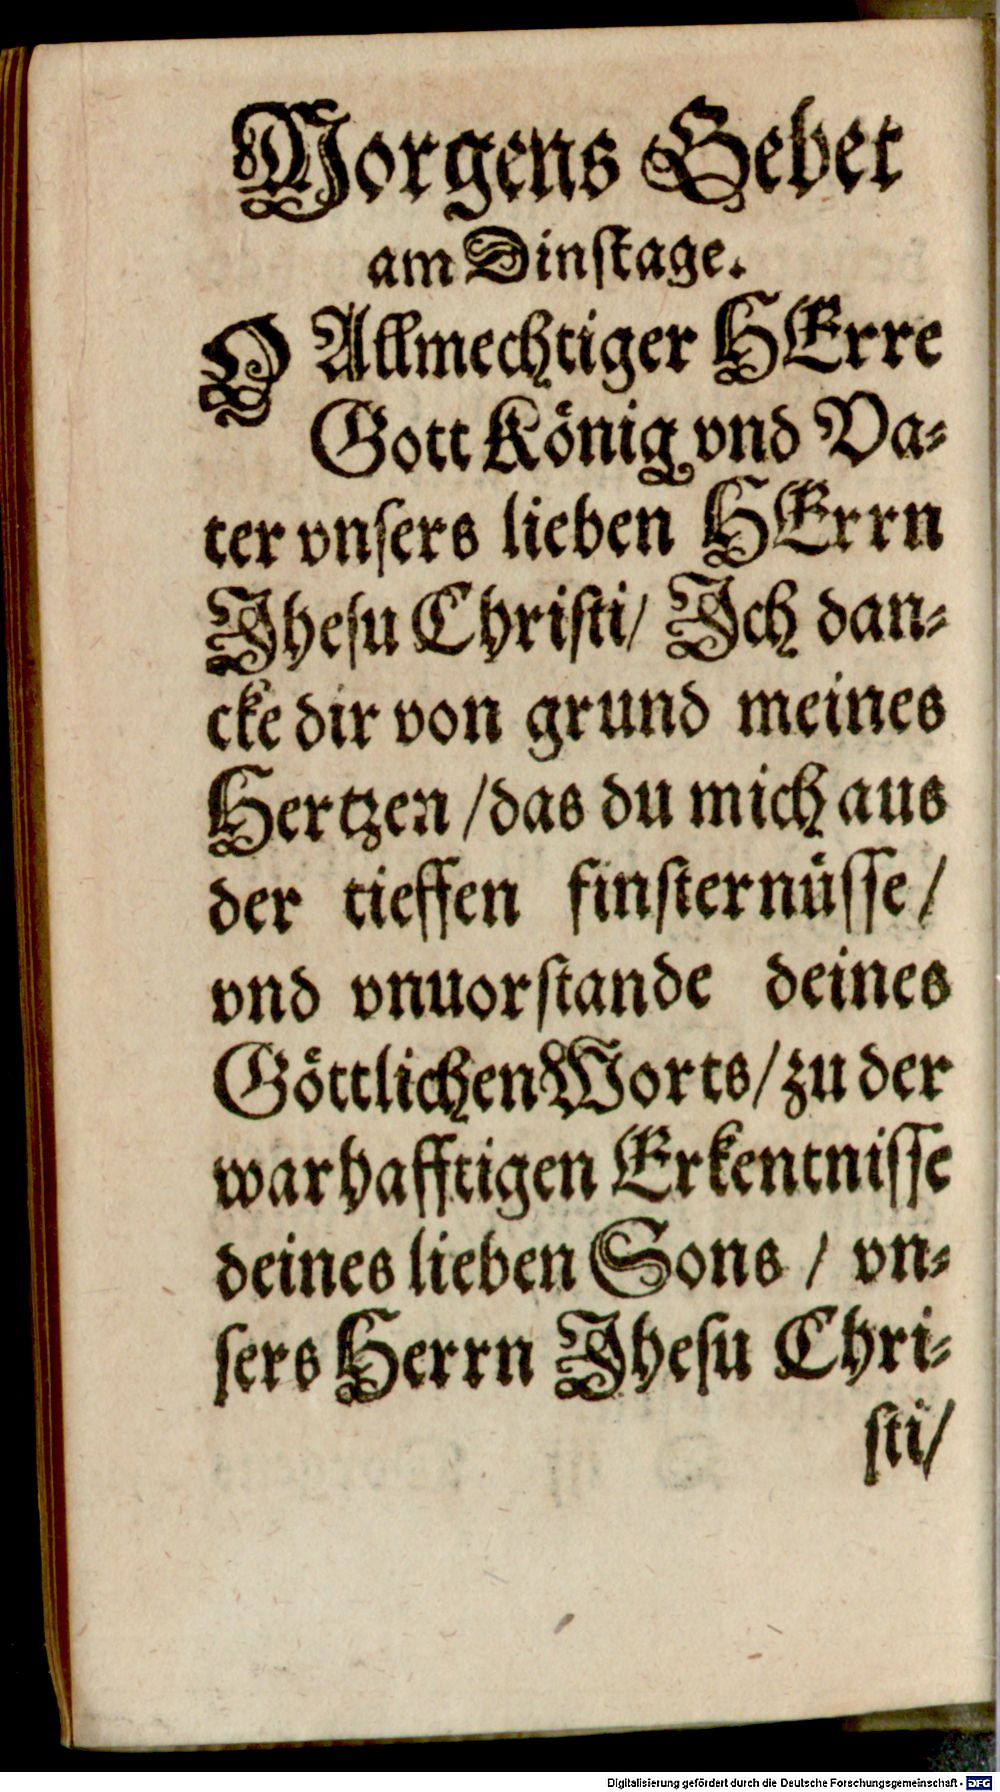 Morgens Gebet
am Dinstage.
O Allmechtiger HErre
Gott König vnd Va-
ter vnsers lieben HErrn
Jhesu Christi/ Jch dan-
cke dir von grund meines
Hertzen/das du mich aus
der tieffen finsternüsse/
vnd vnuorstande deines
Göttlichen Worts/zu der
warhafftigen Erkentnisse
deines lieben Sons / vn-
sers Herrn Jhesu Chri-
sti/
Digitalisierung gefördert durch die Deutsche Forschungsgemeinschaft - DFG